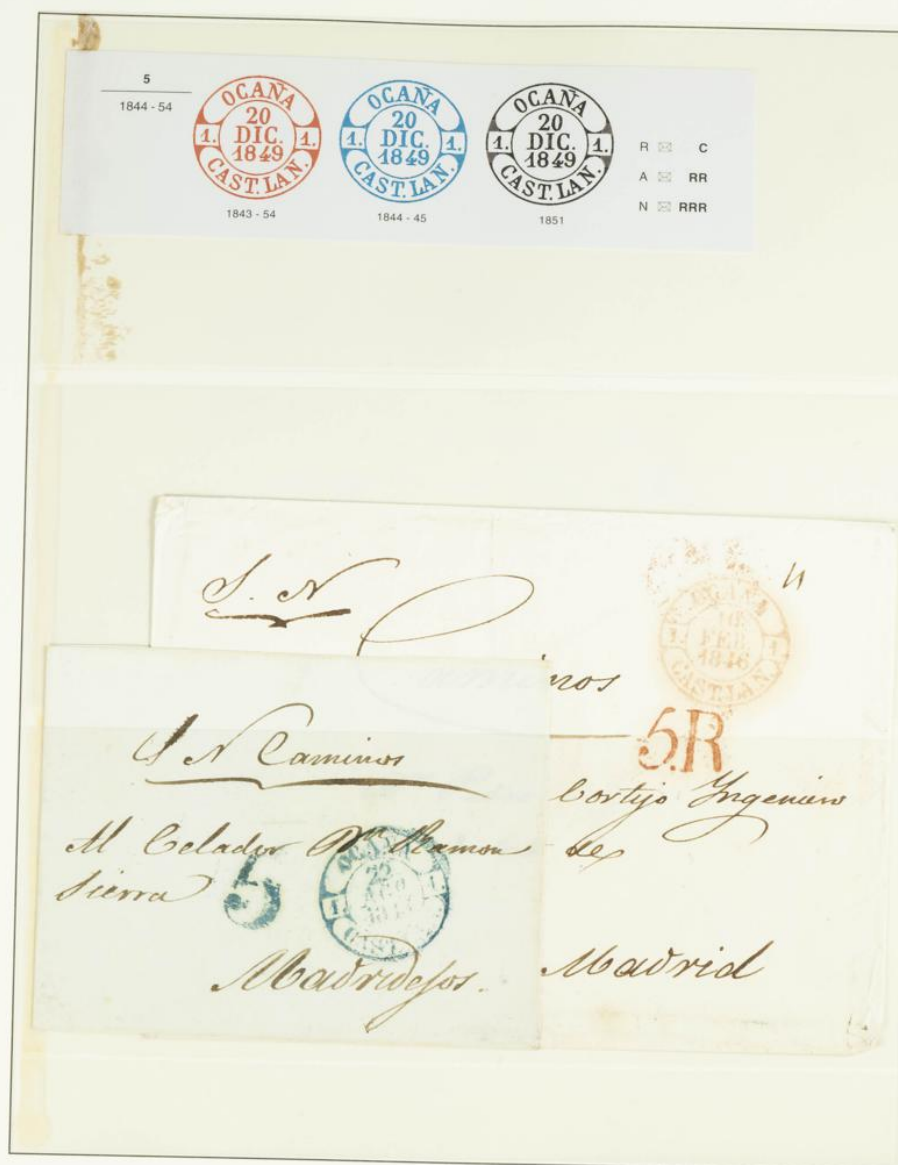 5
1844 - 54
OCAÑA
20
DIC.
1849
1. 1.
CAST. LAN.
1843 - 54
OCAÑA
20
DIC.
1849
1. 1.
CAST. LAN.
1844 - 45
OCAÑA
20
DIC.
1849
1. 1.
CAST. LAN.
1851
R C
A RR
N RRR
S. N
inos
OCAÑA
FEB
1846
1. 1.
CAST. LAN.
5.R
Cortijo Yngeniero
de
Madrid
S N Caminos
Al Celador Dn Ramon
Sierra
5
OCAÑA
22
AGO
1. 1.
CAST.
Madridejos.